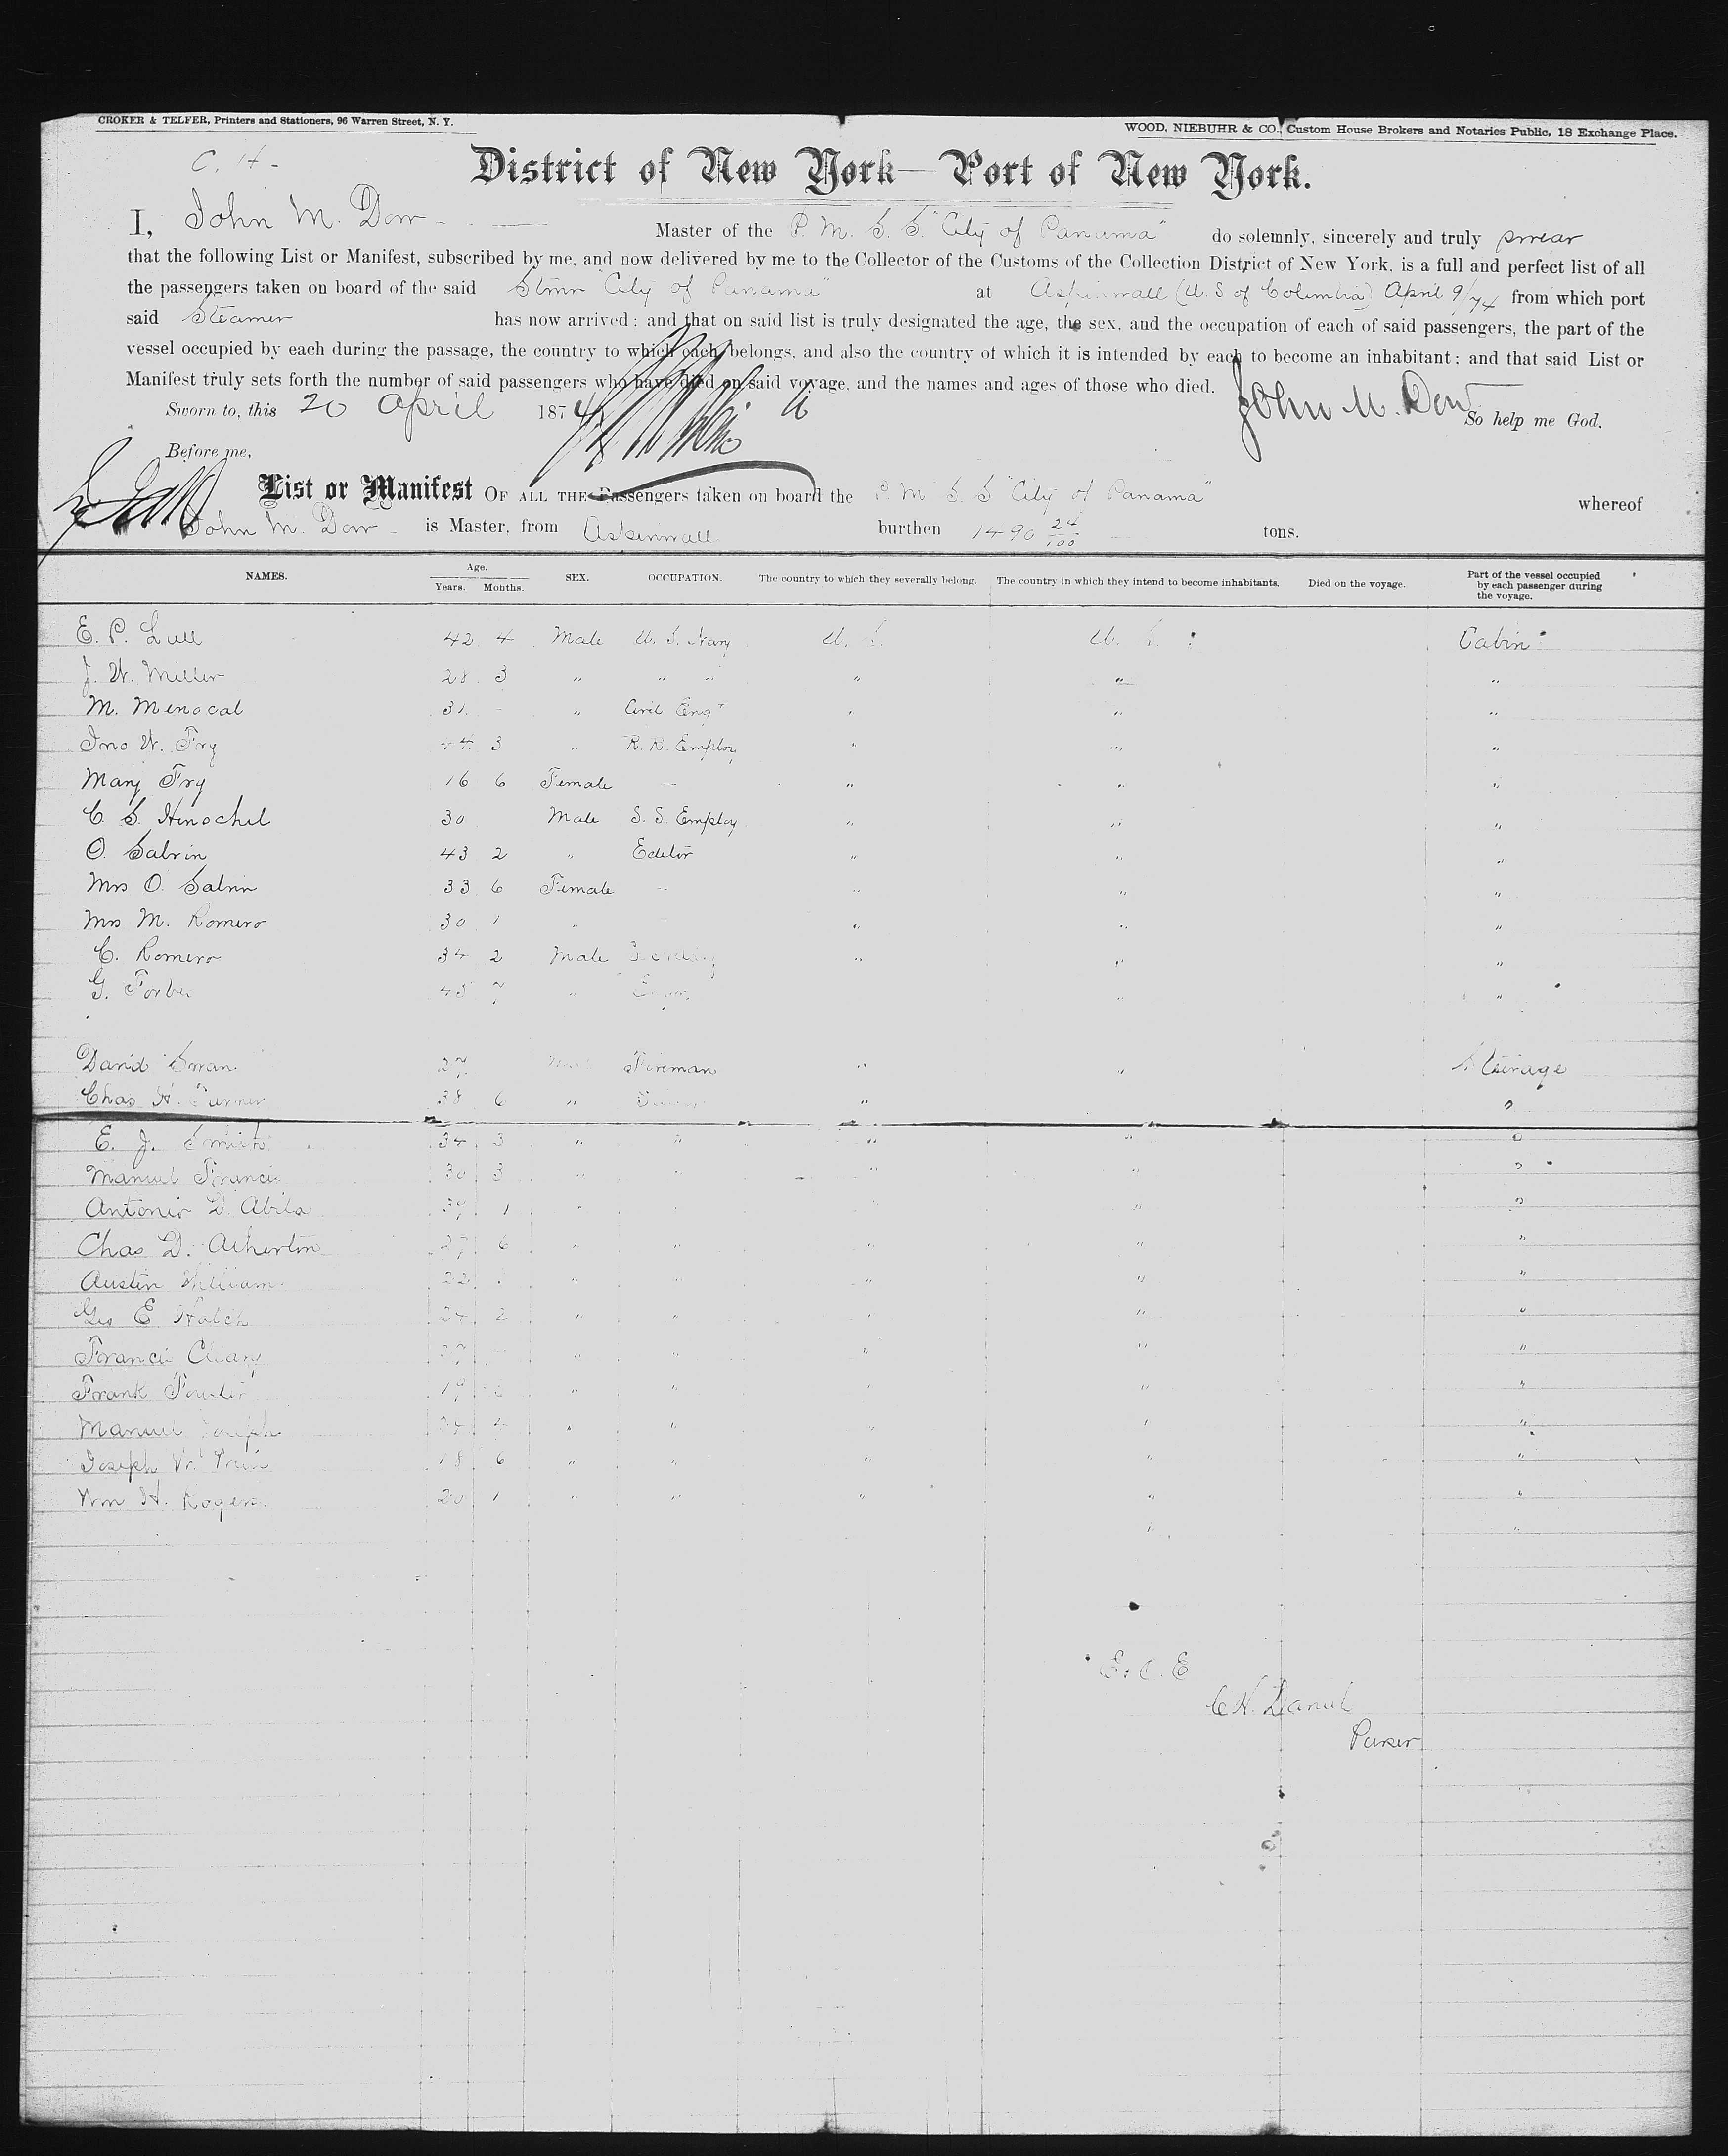 CROKER & TELFER, Printers and Stationers, 96 Warren Street, N. Y.
WOOD, NIEBUHR & CO., Custom House Brokers and Notaries Public, 18 Exchange Place.
C. H.
District of New York—Port of New York.
I, John M. Dow Master of the P. M. S. S. "City of Panama" do solemnly, sincerely and truly swear
that the following List or Manifest, subscribed by me, and now delivered by me to the Collector of the Customs of the Collection District of New York, is a full and perfect list of all
the passengers taken on board of the said Stmr "City of Panama" at Aspinwall (U. S of Columbia) April 9/74 from which port
said Steamer has now arrived; and that on said list is truly designated the age, the sex, and the occupation of each of said passengers, the part of the
vessel occupied by each during the passage, the country to which each belongs, and also the country of which it is intended by each to become an inhabitant; and that said List or
Manifest truly sets forth the number of said passengers who have died on said voyage, and the names and ages of those who died.
Sworn to, this 20 April 1874 John M. Dow So help me God.
Before me,
List or Manifest OF ALL THE Passengers taken on board the P. M. S. S "City of Panama" whereof
John M. Dow is Master, from Aspinwall burthen 1490 24/100 tons.
NAMES. Age. Years. Months. SEX. OCCUPATION. The country to which they severally belong. The country in which they intend to become inhabitants. Died on the voyage. Part of the vessel occupied by each passenger during the voyage.
E. P. Lull 42 4 Male U. S. Navy U. S. U. S. Cabin
J. W. Miller 28 3 " " " " " "
M. Menocal 31 - " Civil Engr " " "
Jno W. Fry 44 3 " R. R. Employ " " "
Mary Fry 16 6 Female — " " "
C. S. Henschel 30 Male S. S. Employ " " "
O. Salvin 43 2 " Editor " " "
Mrs O. Salvin 33 6 Female — " " "
Mrs M. Romero 30 1 " " " "
C. Romero 34 2 Male " " "
G. Forbes 45 7 " " "
David Swan 27 Male Fireman " " Steirage
Chas H. Turner 38 6 " " "
E. J. Smith 34 3 " " " " "
Manuel Francis 30 3 " " " " "
Antonio D. Abila 39 1 " " "
Chas D. Atherton 27 6 " " " " "
Austin William 22 " " " " "
Geo E Hatch 24 2 " " " " "
Francis Cleary 27 " " " " "
Frank Fowler 19 " " " " "
Manuel Joseph 24 4 " " " " "
Joseph W. 18 6 " " " " "
Wm H. Rogers 20 1 " " " " "
"
E. & O. E
C H. Daniel
Purser